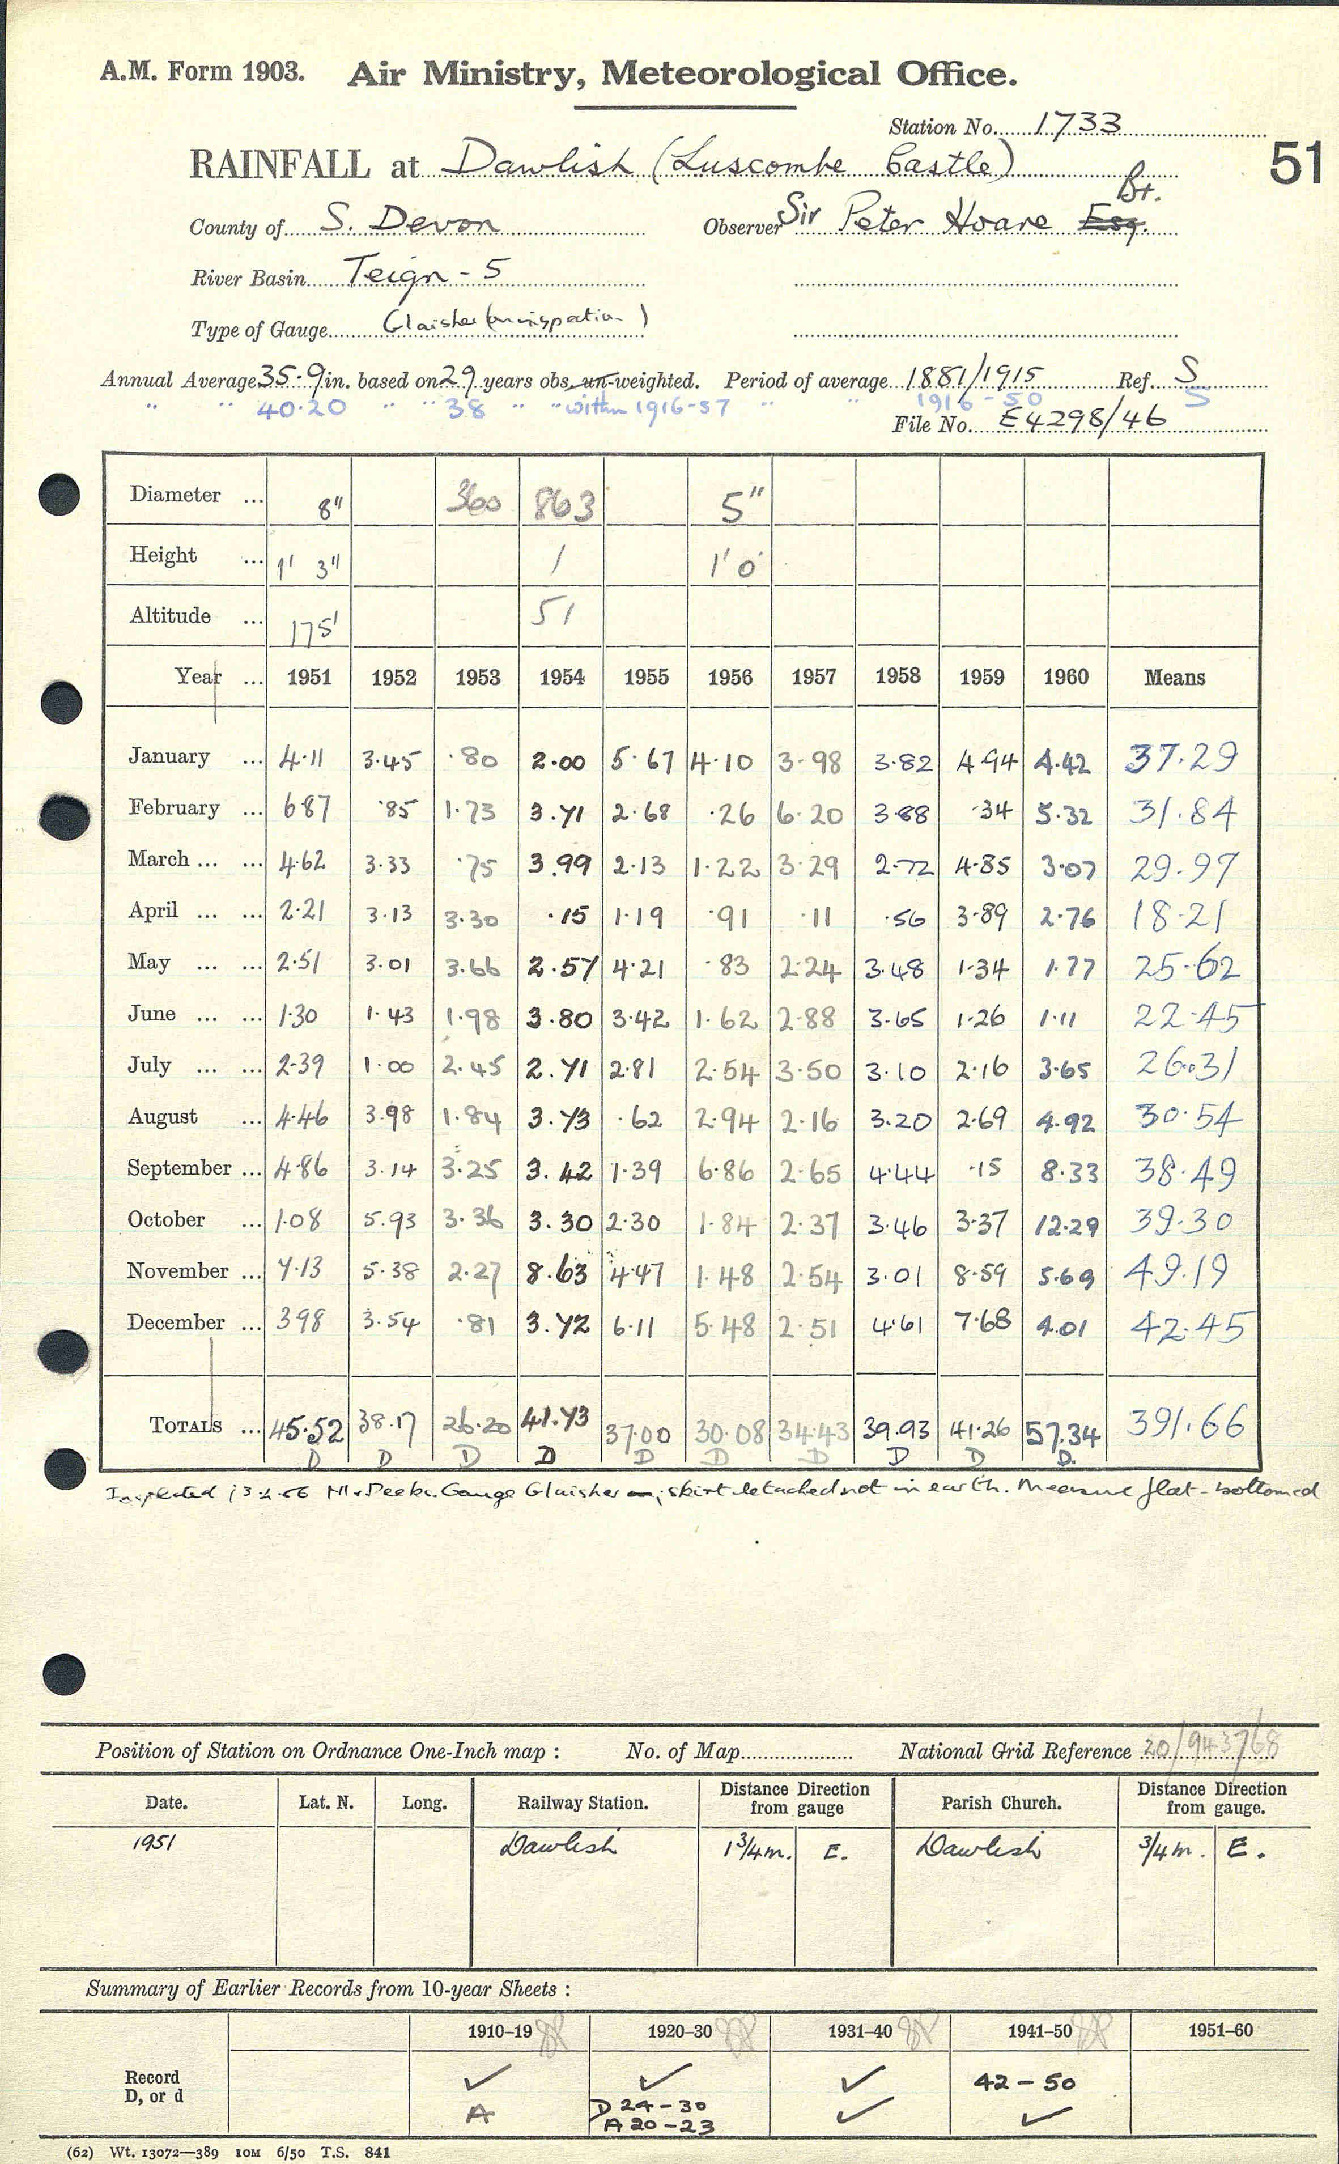 A.M. Form 1903. Air Ministry, Meteorological Office.
Station No. 1733
RAINFALL at Dawlish (Luscombe Castle) 51
Bt.
County of S. Devon Observer Sir Peter Hoare Esq.
River Basin Teign - 5
Type of Gauge Glaisher (on inspection)
Annual Average 35.9 in. based on 29 years obs. un-weighted. Period of average 1881/1915 Ref. S
" " 40.20 " " 38 " " within 1916-57 " " 1916-50 S
File No. E4298/46
Diameter ... 8" 360 863 5"
Height ... 1' 3" 1 1' 0"
Altitude ... 175' 51
Year ... 1951 1952 1953 1954 1955 1956 1957 1958 1959 1960 Means
January ... 4.11 3.45 .80 2.00 5.67 4.10 3.98 3.82 4.94 4.42 37.29
February ... 6.87 .85 1.73 3.71 2.68 .26 6.20 3.88 .34 5.32 31.84
March ... ... 4.62 3.33 .75 3.99 2.13 1.22 3.29 2.72 4.85 3.07 29.97
April ... ... 2.21 3.13 3.30 .15 1.19 .91 .11 .56 3.89 2.76 18.21
May ... ... 2.51 3.01 3.66 2.57 4.21 .83 2.24 3.48 1.34 1.77 25.62
June ... ... 1.30 1.43 1.98 3.80 3.42 1.62 2.88 3.65 1.26 1.11 22.45
July ... ... 2.39 1.00 2.45 2.71 2.81 2.54 3.50 3.10 2.16 3.65 26.31
August ... 4.46 3.98 1.84 3.73 .62 2.94 2.16 3.20 2.69 4.92 30.54
September ... 4.86 3.14 3.25 3.42 1.39 6.86 2.65 4.44 .15 8.33 38.49
October ... 1.08 5.93 3.36 3.30 2.30 1.84 2.37 3.46 3.37 12.29 39.30
November ... 7.13 5.38 2.27 8.63 4.47 1.48 2.54 3.01 8.59 5.69 49.19
December ... 3.98 3.54 .81 3.72 6.11 5.48 2.51 4.61 7.68 4.01 42.45
TOTALS ... 45.52 38.17 26.20 41.73 37.00 30.08 34.43 39.93 41.26 57.34 391.66
D D D D D D D D D D.
Inspected 13.2.56 Gauge Glaisher skirt detached not in earth. Measure flat-bottomed
Position of Station on Ordnance One-Inch map : No. of Map National Grid Reference 20/943768
Date. Lat. N. Long. Railway Station. Distance Direction from gauge Parish Church. Distance Direction from gauge.
1951 Dawlish 1 3/4 m. E. Dawlish 3/4 m. E.
Summary of Earlier Records from 10-year Sheets :
1910-19 1920-30 1931-40 1941-50 1951-60
Record D, or d ✓ ✓ ✓ 42 - 50
A D 24-30 ✓ ✓
A 20-23
(62) Wt. 13072—389 10M 6/50 T.S. 841